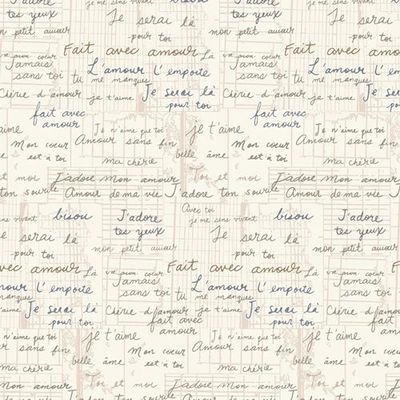 J'adore
Je serai là
tes yeux
je me sens vivant
bisou
pour toi
mon petit amour
Fait avec amour
va mon cœur
Jamais
sans toi
L'amour l'emporte
tu me manques
Chérie d'amour
je t'aime
Je serai là
pour toi
fait avec
amour
Je n'aime que toi
je t'aime
Mon cœur
est à toi
Amour sans fin
belle âme
ma chérie
Toi et moi
J'adore mon amour
J'adore ton sourire
Amour de ma vie
Avec toi
je me sens vivant
bisou
J'adore
tes yeux
Je serai là
pour toi
mon petit amour
Fait avec amour
La
va mon cœur
Jamais
sans toi
L'amour l'emporte
tu me manques
Je serai là
pour toi
Chérie d'amour
je t'aime
fait avec
amour
Je n'aime que toi
je t'aime
Amour sans fin
Mon cœur
est à toi
belle âme
ma chérie
Toi et moi
J'adore mon amour